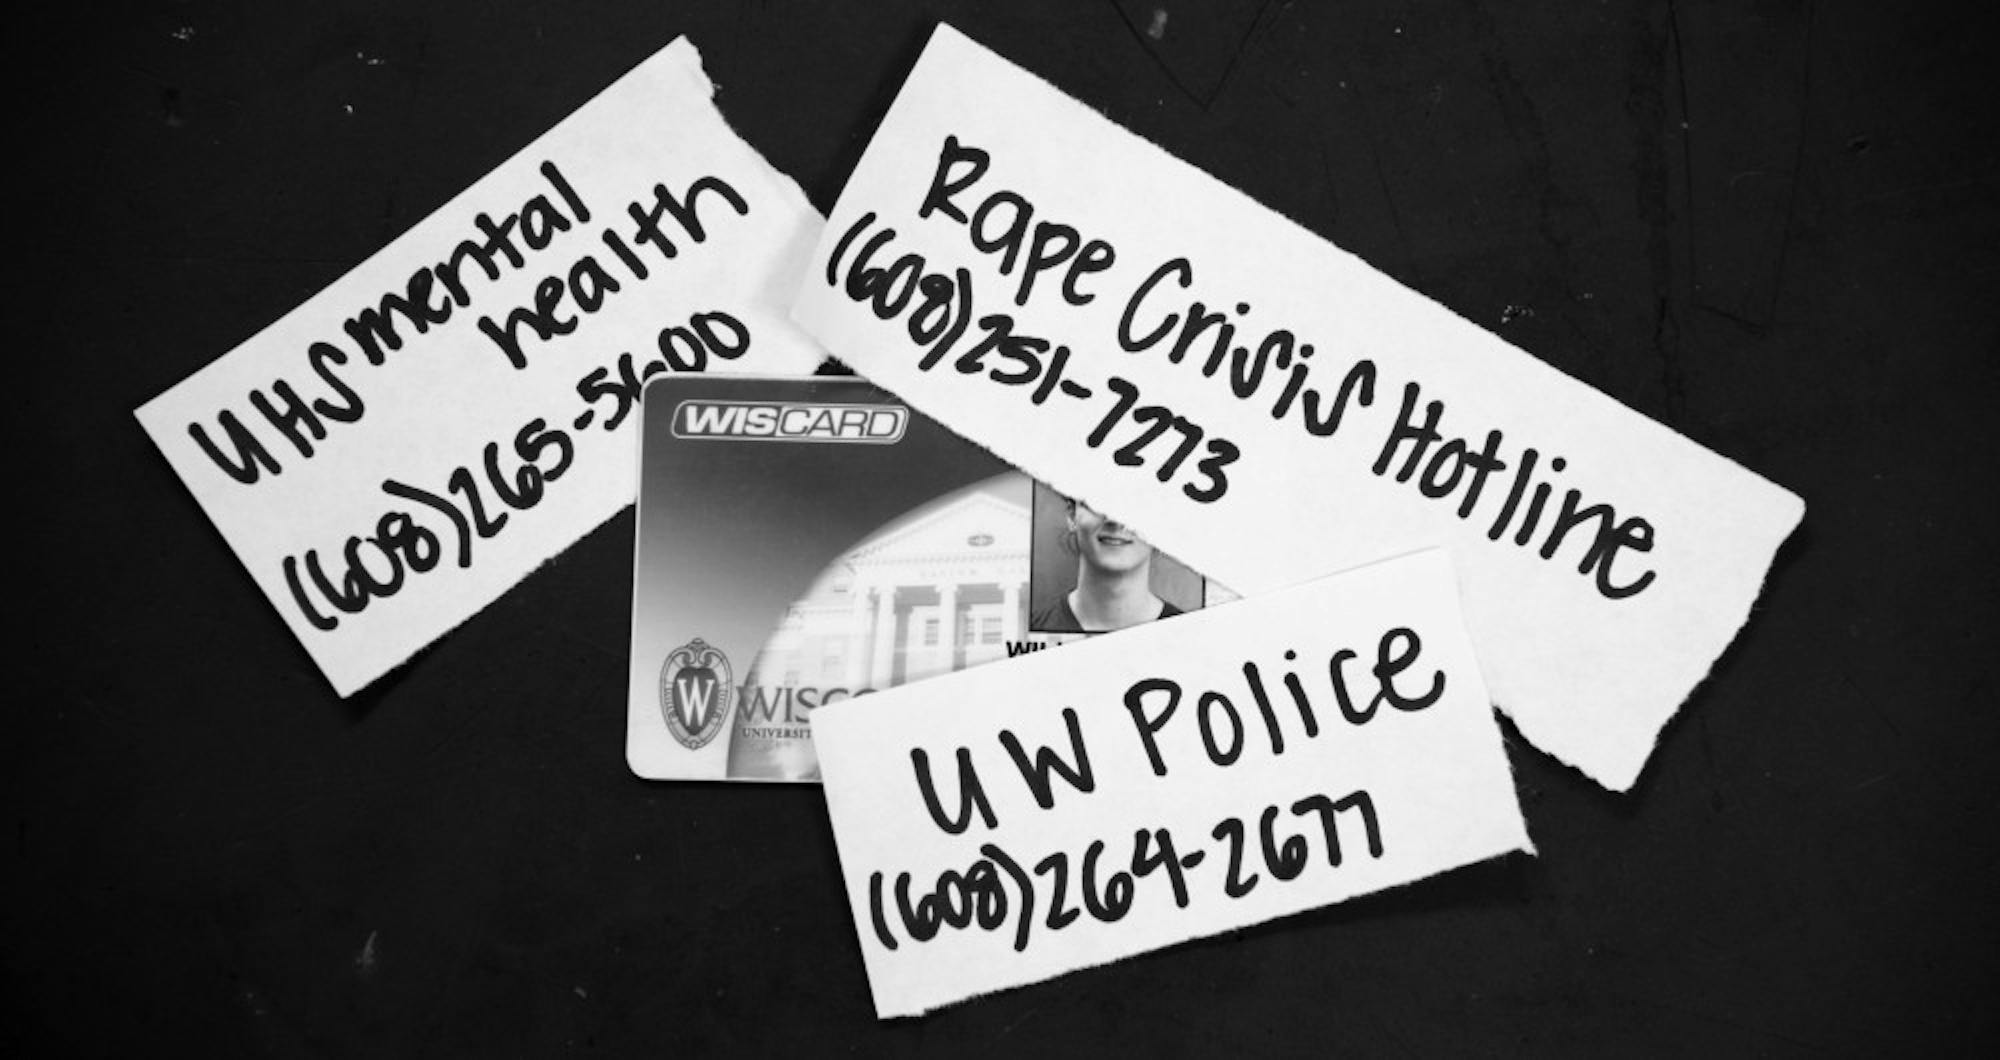 UHS mental
health
(608)265-5600
Rape Crisis Hotline
(608)251-7273
WISCARD
W
UW Police
(608)264-2677